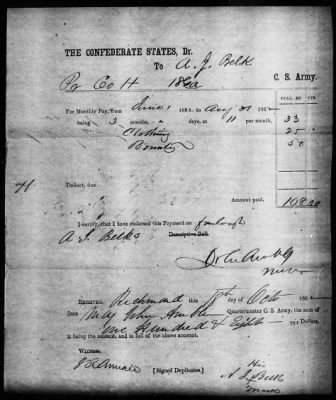 THE CONFEDERATE STATES, Dr.
To A. J. Belk
Pr Co H 1862 C. S. Army.
DOLLS. CTS.
For Monthly Pay, from June 1 186 , to Aug 31 186
being 3 months, days, at 11 per month, 33
Clothing 25
Bounty 50
Deduct, due
Amount paid, 108.00
I certify, that I have endorsed this Payment on furlough
A. J. Belks Descriptive Roll.
RECEIVED, Richmond day of Oct 186
from Maj John Ambler Quartermaster C. S. Army, the sum of
One Hundred & Eight Dollars
it being the amount, and in full of the above account.
Witness:
[Signed Duplicates.]
His
A J Belk
mark